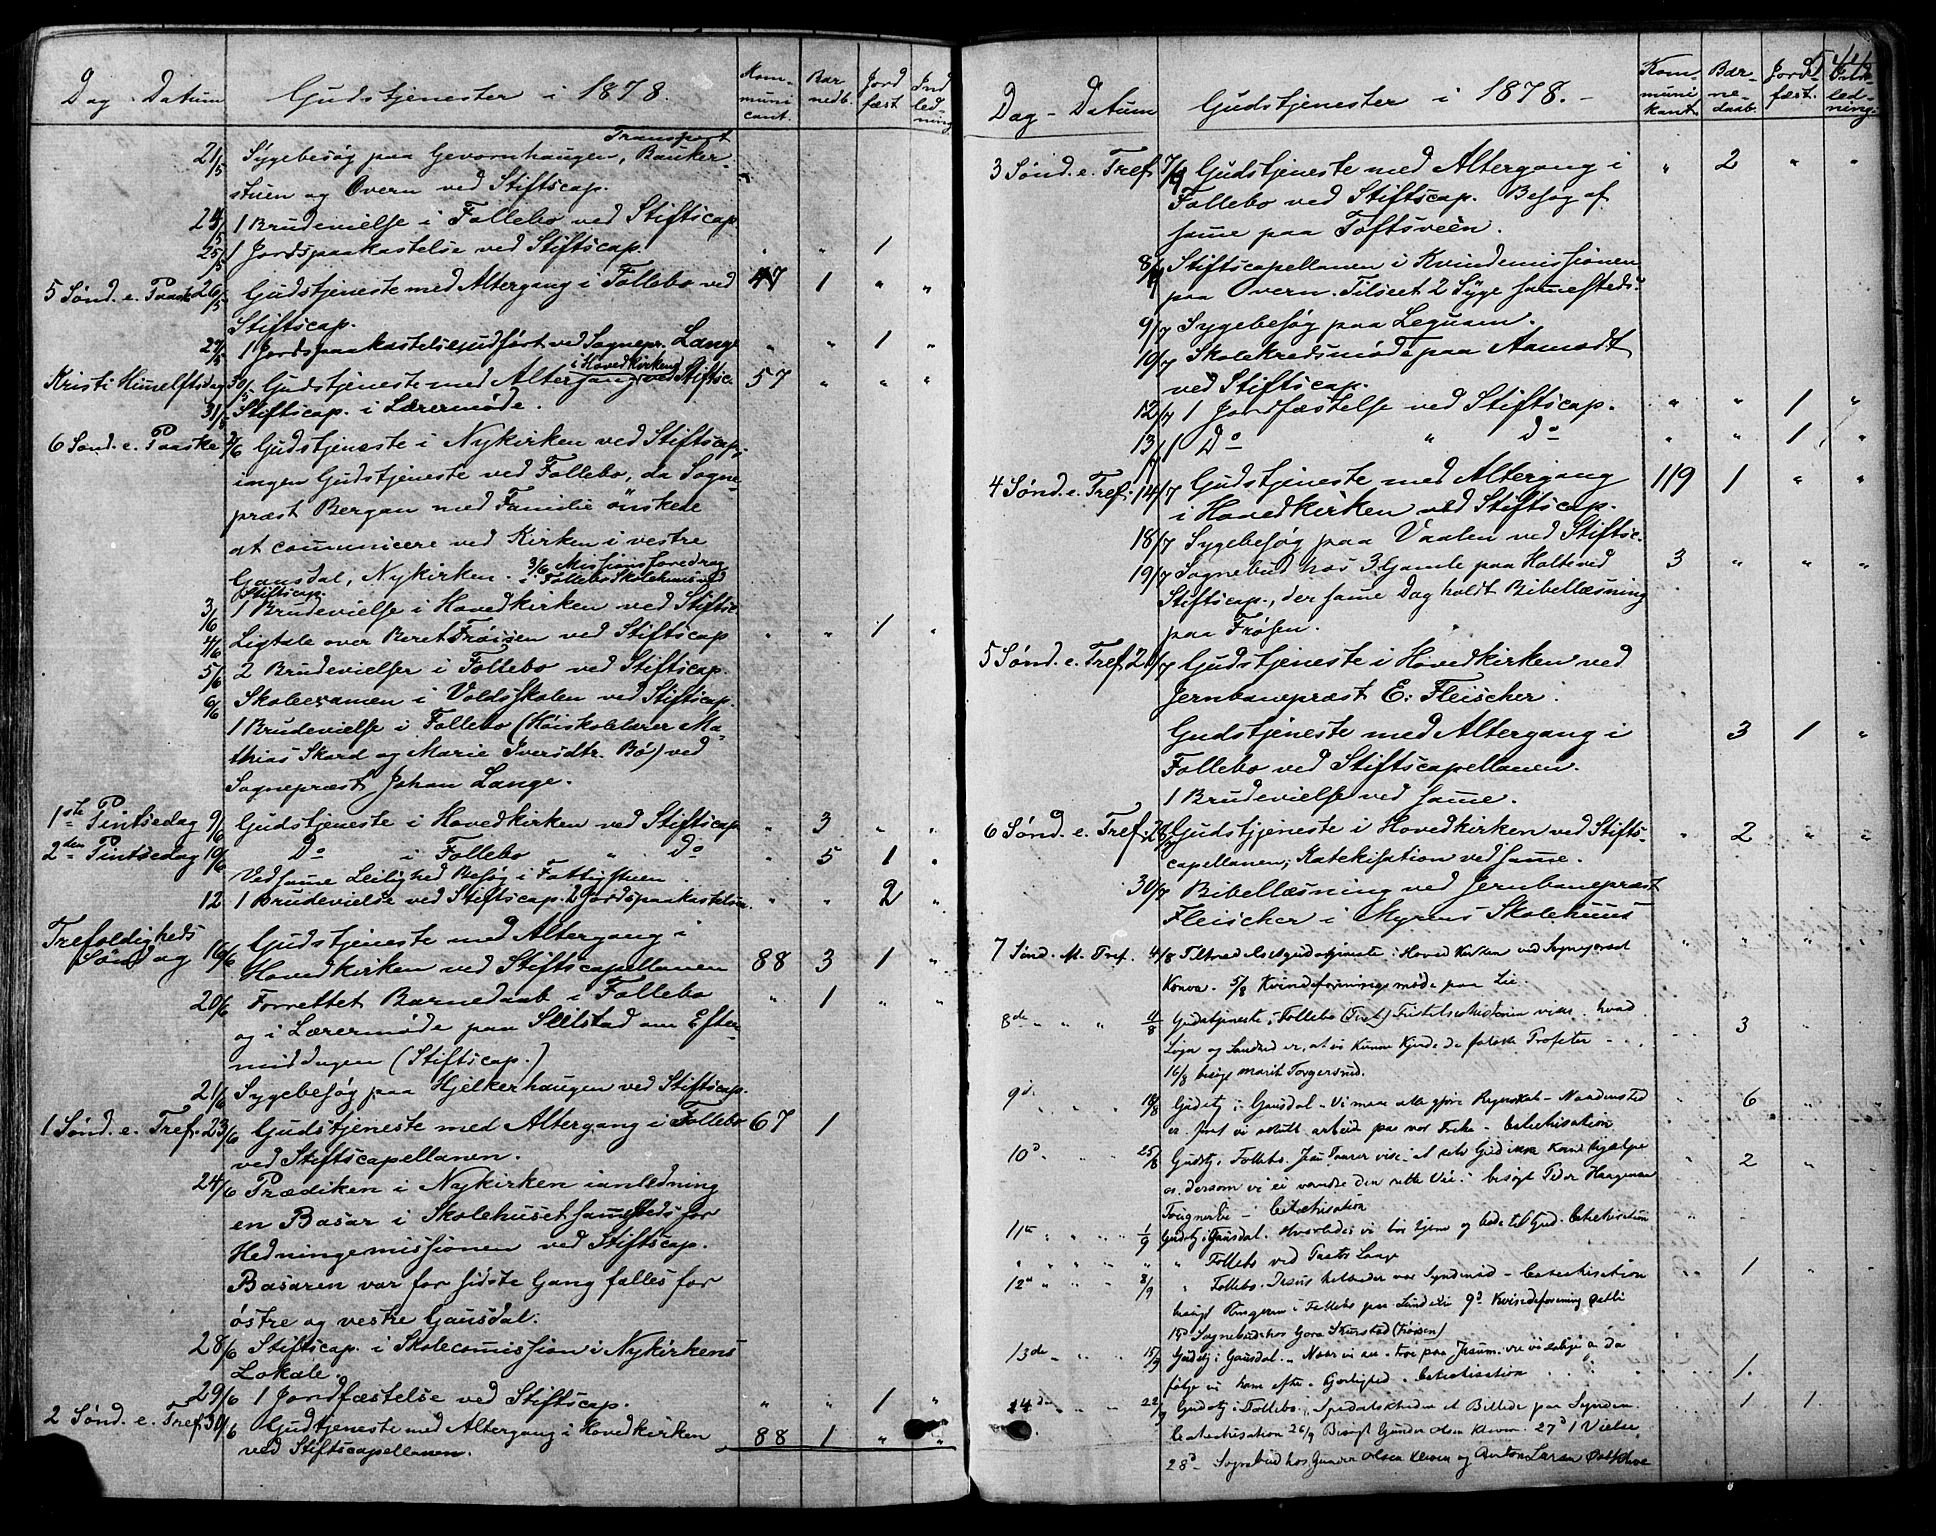 Dag - Datum Gudstjenester i 1878. Kom-municant. Bar nedb. Jord fæst Ind led-ning
Transport
21/5 Sygebesøg paa Gevornhaugen, Bauker-
stuen og Overn ved Stiftscap.
24/5 1 Brudevielse i Follebo ved Stiftscap.
25/5 1 Jordspaakastelse ved Stiftscap. " " 1
5 Sønd. e. Paaske 26/5 Gudstjeneste med Altergang i Follebo ved 47 1 " "
Stiftscap.
27/5 1 Jordspaakastelse udført ved Sognepr. Lange " " 1 "
i Hovedkirken
Kristi Himelftsdag 30/5 Gudstjeneste med Altergang ved Stiftsc. 57 " " "
31/5 Stiftscap. i Lærermøde.
6 Sønd. e. Paaske 2/6 Gudstjeneste i Nykirken ved Stiftscap.;
ingen Gudstjeneste ved Follebo, da Sogne-
præst Bergan med Familie önskede
at communicere ved Kirken i vestre
Gausdal, Nykirken. 3/6 Missionsforedrag
i Follebo Skolehus ved
Stiftscap.
3/6 1 Brudevielse i Hovedkirken ved Stiftsc.
4/6 Ligtale over Beret Frøisen ved Stiftscap " " 1 "
5/6 2 Brudevielser i Follebo ved Stiftscap.
6/6 Skoleexamen i Voldsskolen ved Stiftscap.
1 Brudevielse i Follebo (Höiskolelærer Ma-
thias Skard og Marie Iversdtr. Bö) ved
Sognepræst Johan Lange.
1ste Pintsedag 9/6 Gudstjeneste i Hovedkirken ved Stiftscap. " 3 " "
2den Pintsedag 10/6 Do i Follebo " Do " 5 1 "
Ved samme Leilighed Besøg i Fattigstuen.
12 1 Brudevielse ved Stiftscap. 2 Jordspaakastelser. " " 2 "
Trefoldigheds
Søndag 16/6 Gudstjeneste med Altergang i
Hovedkirken ved Stiftscapellanen 88 3 1 "
20/6 Forrettet Barnedaab i Follebo " 1 " "
og i Lærermøde paa Seilstad om Efter-
middagen (Stiftscap.)
21/6 Sygebesøg paa Hjelkerhaugen ved Stiftscap.
1 Sønd. e. Tref. 23/6 Gudstjeneste med Altergang i Follebo 67 1
ved Stiftscapellanen.
24/6 Prædiken i Nykirken i anledning
en Basar i Skolehuset samesteds for
Hedningemissionen ved Stiftscap.
Basaren var for sidste Gang fælles for
østre og vestre Gausdal.
28/6 Stiftscap. i Skolecomission i Nykirkens
Lokale.
29/6 1 Jordfæstelse ved Stiftscap. " " 1 "
2 Sønd. e. Tref. 30/6 Gudtjeneste med Altergang i Hovedkirken 88 1 " "
ved Stiftscapellanen.
Dag - Datum Gudstjenester i 1878. - Kom-muni-kant. Bær-ne-daab. Jord-fæst. Indled-ning.
3 Sønd. e. Tref. 7/7 Gudstjeneste med Altergang i " 2 " "
Follebo ved Stiftscap. Besøg af
same paa Toftsveen.
8/7 Stiftscapellanen i Kvindemissionen
paa Overn. Tilseet 2 Syge samesteds.
9/7 Sygebesøg paa Leguam.
10/7 Skolekredsmøde paa Aamodt
ved Stiftscap.
12/7 1 Jordfæstelse ved Stiftscap. " " 1 "
13/7 1 Do " Do " " 1 "
4 Sønd. e. Tref. 14/7 Gudstjeneste med Altergang 119 1 " "
i Hovedkirken ved Stiftscap.
18/7 Sygebesøg paa Vaalen ved Stiftsc.
19/7 Sognebud hos 3 Gamle paa Holte ved 3 " " "
Stiftscap., der same Dag holdt Bibellæsning
paa Frøsen.
5 Sønd. e. Tref. 21/7 Gudstjeneste i Hovedkirken ved
Jernbanepræst E. Fleischer.
Gudstjeneste med Altergang i 3 1 "
Follebo ved Stiftscapellanen.
1 Brudevielse ved same.
6 Sønd. e. Tref. 28/7 Gudstjeneste i Hovedkirken ved Stifts- " 2 " "
capellanen; Katekisation ved same.
30/7 Bibellæsning ved Jernbanepræst
Fleischer i Myrens Skolehuus
7 Sønd. M. Tref. 4/8 Tiltrædelsesgudstjeneste i Hoved Kirken ved Sognepræst " " " "
Konva. 5/8 Kvindeforeningsmøde paa Lie.
8de " " " 11/8 Gudstjeneste i Follebo (Text) viser hvad 3
Løgn og Sandhed er, at vi kunne kjende de falske Profeter
16/8 besøgt Marit Torgersrud.
9de " " 18/8 Gudstj. i Gausdal - Vi maa alle gjøre Regnskab - Naadenstid 6
er, fort vi skulle arbeide paa vor Frelse - catechisation
10de " " 25/8 Gudstj. Follebo. Jesu Taarer viser at selv Gud ikke kan hjælpe 2
os, dersom vi ei vandre den rette Vei. besøgt Peder Haugman
catechisation
11te " " " 1/9 Gudstj. i Gausdal. Hvorledes vi bør tjene og bede til Gud. catechisation
" " " " " Follebo ved Pastor Lange
12te " " " 8/9 " Follebo. Jesus helbreder vor - catechisation 1
i Follebo paa Kvindeforening
15de Sognebud hos Gora Skurstad (Frøisen)
13de " " 15/9 Gudstj. i Gausdal. Naar vi tro paa Jesum, ere vi salige og da 1
følge vi ham efter i Gjerlighed. catechisation
14de " 22/9 Gudstj. i Follebo. Spedalskheden et Billede paa Synden. 1 1
Catechisation 26/9 Besøgt Gunder Olsen Kleven. 27d 1 Vielse.
28d - Sognebud hos Gunder Olsen Kleven og Anton Larsen